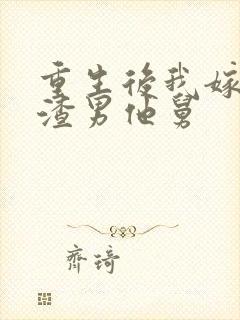 重生後我嫁
渣男他舅
齊琦